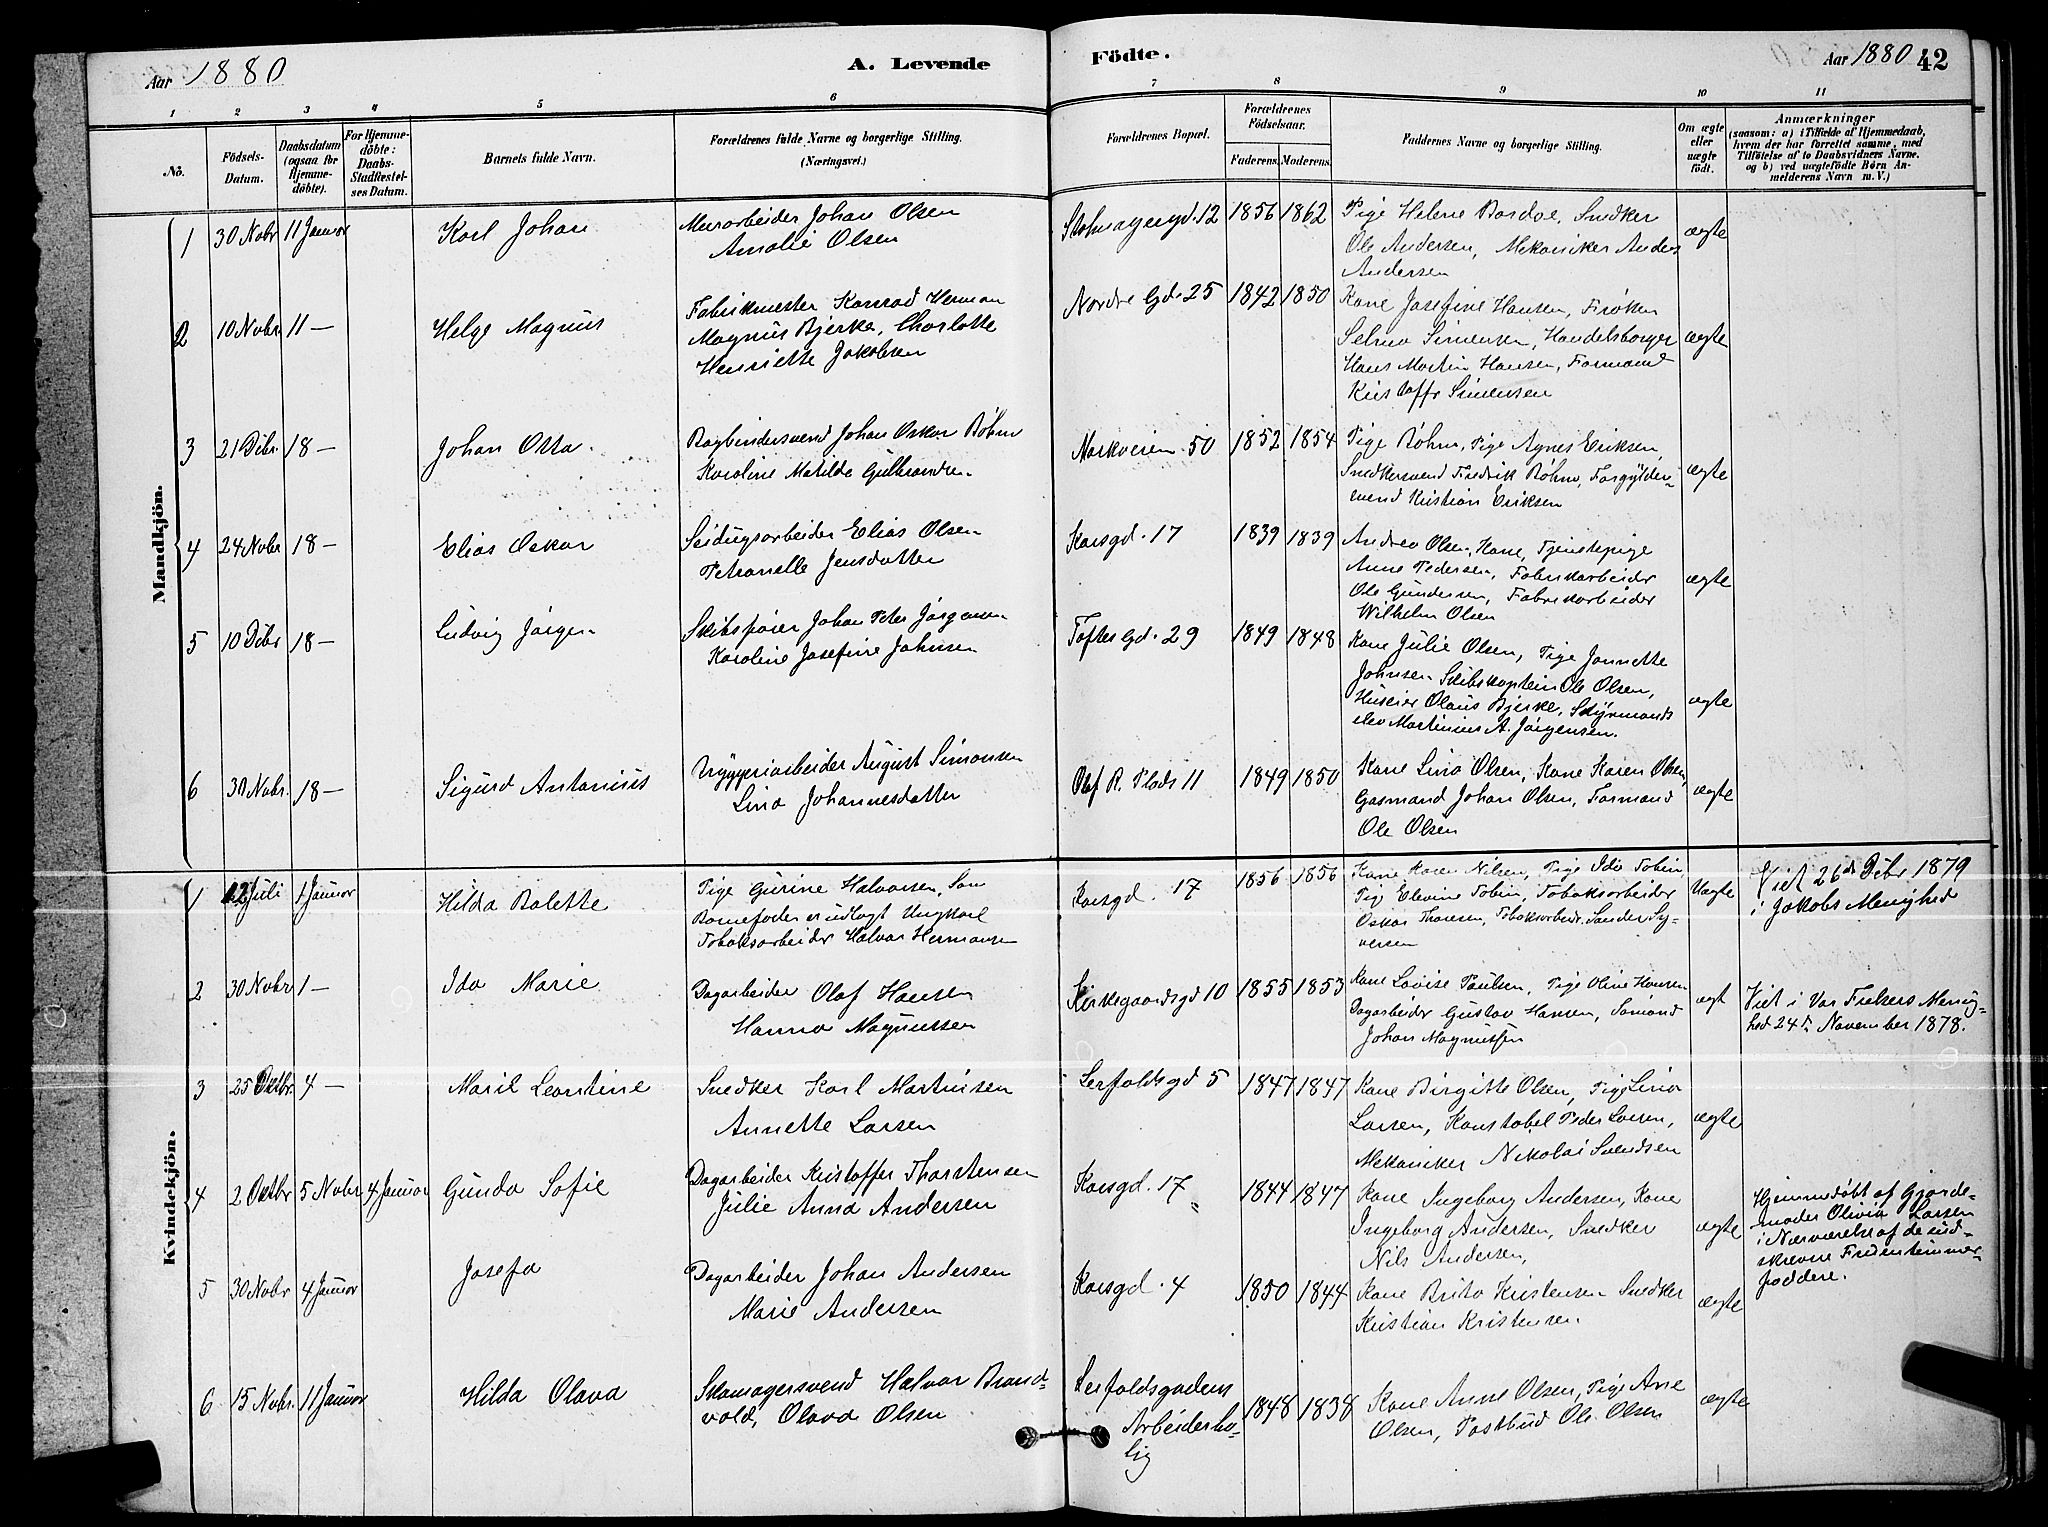 Aar 1880
A. Levende
Födte.
Aar 1880 42
1 2 3 4 5 6 7 8 9 10 11
No.
Födsels-
Datum.
Daabsdatum
(ogsaa for
Hjemme-
döbte).
For Hjemme-
döbte:
Daabs-
Stadfæstel-
ses Datum.
Barnets fulde Navn.
Forældrenes fulde Navne og borgerlige Stilling.
(Næringsvei.)
Forældrenes Bopæl.
Forældrenes
Födselsaar.
Faderens. Moderens.
Faddernes Navne og borgerlige Stilling.
Om ægte
eller
uægte
födt.
Anmærkninger
(saasom: a) i Tilfælde af Hjemmedaab,
hvem der har forrettet samme, med
Tilföielse af to Daabsvidners Navne.
og b) ved uægtefödte Börn An-
melderens Navn m. V.)
Mandkjön.
1 30 Nobr 11 Januar
Karl Johan
Murarbeider Johan Olsen
Amalie Olsen
12 1856 1862
Pige Helene Bardoe, Snedker
Ole Andersen, Mekaniker Anders
Andersen
ægte
2 10 Nobr 11 —
Helge Magnus
Fabrikmester Konrad Herman
Magnus Bjerke, Charlotte
Henriette Jakobsen
Nordre Gd. 25 1842 1850
Kone Josefine Hansen, Frøken
Selma Simensen, Handelsborger
Hans Martin Hansen, Formand
Kristoffr Simensen
ægte
3 21 Debr. 18 —
Johan Otto.
Bogbindersvend Johan Oskar Bøhm
Karoline Matilde Gulbrandsen
Markveien 50 1852 1854
Pige Bøhm, Pige Agnes Eriksen,
Snedkersvend Fredrik Bøhm, Forgylder-
svend Kristian Eriksen
ægte
4 24 Nobr 18 —
Elias Oskar
Seildugsarbeider Elias Olsen
Petronelle Jensdatter
Korsgd. 17 1839 1839
Andrea Olsen, Kone, Tjenestepige
Anne Pedersen, Fabrikarbeider
Ole Gundersen, Fabrikarbeider
Wilhelm Olsen
ægte
5 10 Debr 18 —
Ludvig Jørgen
Johan Peter Jørgensen
Karoline Josefine Johnsen
Toftes Gd. 29 1849 1848
Kone Julie Olsen, Pige Jannette
Johnsen Skibskaptein Ole Olsen,
Huseier Olaus Bjerke, Styrmands
elev Martinius A. Jørgensen.
ægte
6 30 Nobr. 18 —
Sigurd Antonius
Bryggeriarbeider August Simonsen
Lina Johannesdatter
Olaf R. Plads 11 1849 1850
Kone Lina Olsen, Kone Karen Olsen,
Gasmand Johan Olsen, Formand
Ole Olsen
ægte
Kvindekjön.
1 12 Juli 1 Januar
Hilda Bolette
Pige Gurine Halvorsen, Som
Barnefader er udlagt Ungkarl
Tobaksarbeider Halvor Hermansen
Korsgd. 17 1856 1856
Kone Karen Nilsen, Pige Ida Tobin,
Pige Elevine Tobin, Tobaksarbeider
Oskar Thoresen, Tobaksarbeidr. Sander Sy-
versen
Uægte
Viet 26de Debr 1879
i Jakobs Menighed
2 30 Nobr 1 —
Ida Marie
Dagarbeider Olaf Hansen
Hanna Magnussen
Kirkegaardsgd 10 1855 1853
Kone Lovise Paulsen, Pige Oline Hansen
Dagarbeider Gustav Hansen, Sømand
Johan Magnussen
ægt
Viet i Vor Frelsers Menig-
hed 24de November 1878.
3 25 Oktbr. 4 —
Maril Leontine
Snedker Karl Martinsen
Annette Larsen
Lerfoldsgd 5 1847 1847
Kone Birgitte Olsen, Pige Lina
Larsen, Konstabel Peder Larsen,
Mekaniker Nikolai Svendsen
ægte
4 2 Oktbr 5 Nobr 4 Januar
Gunda Sofie
Dagarbeider Kristoffer Thorstensen
Julie Anna Andersen
Korsgd. 17 1844 1847
Kone Ingeborg Andersen, Kone
Ingeborg Andersen, Snedker
Nils Andersen,
ægte
Hjemmedøbt af Gjorde-
moder Olivia Larsen
i Nærværelse af de ind-
skrevne Fruentimmer-
faddere.
5 30 Nobr 4 Januar
Josefa
Dagarbeider Johan Andersen
Marie Andersen
Korsgd. 4 1850 1844
Kone Brita Kristensen Snedker
Kristian Kristensen
ægte
6 15 Nobr. 11 Januar
Hilda Olava
Skomagersvend Halvor Brand-
vold, Olava Olsen
Lerfoldsgadens
Arbeiderbo-
lig
1848 1838
Kone Anne Olsen, Pige Ane
Olsen, Postbud Ole Olsen
ægte